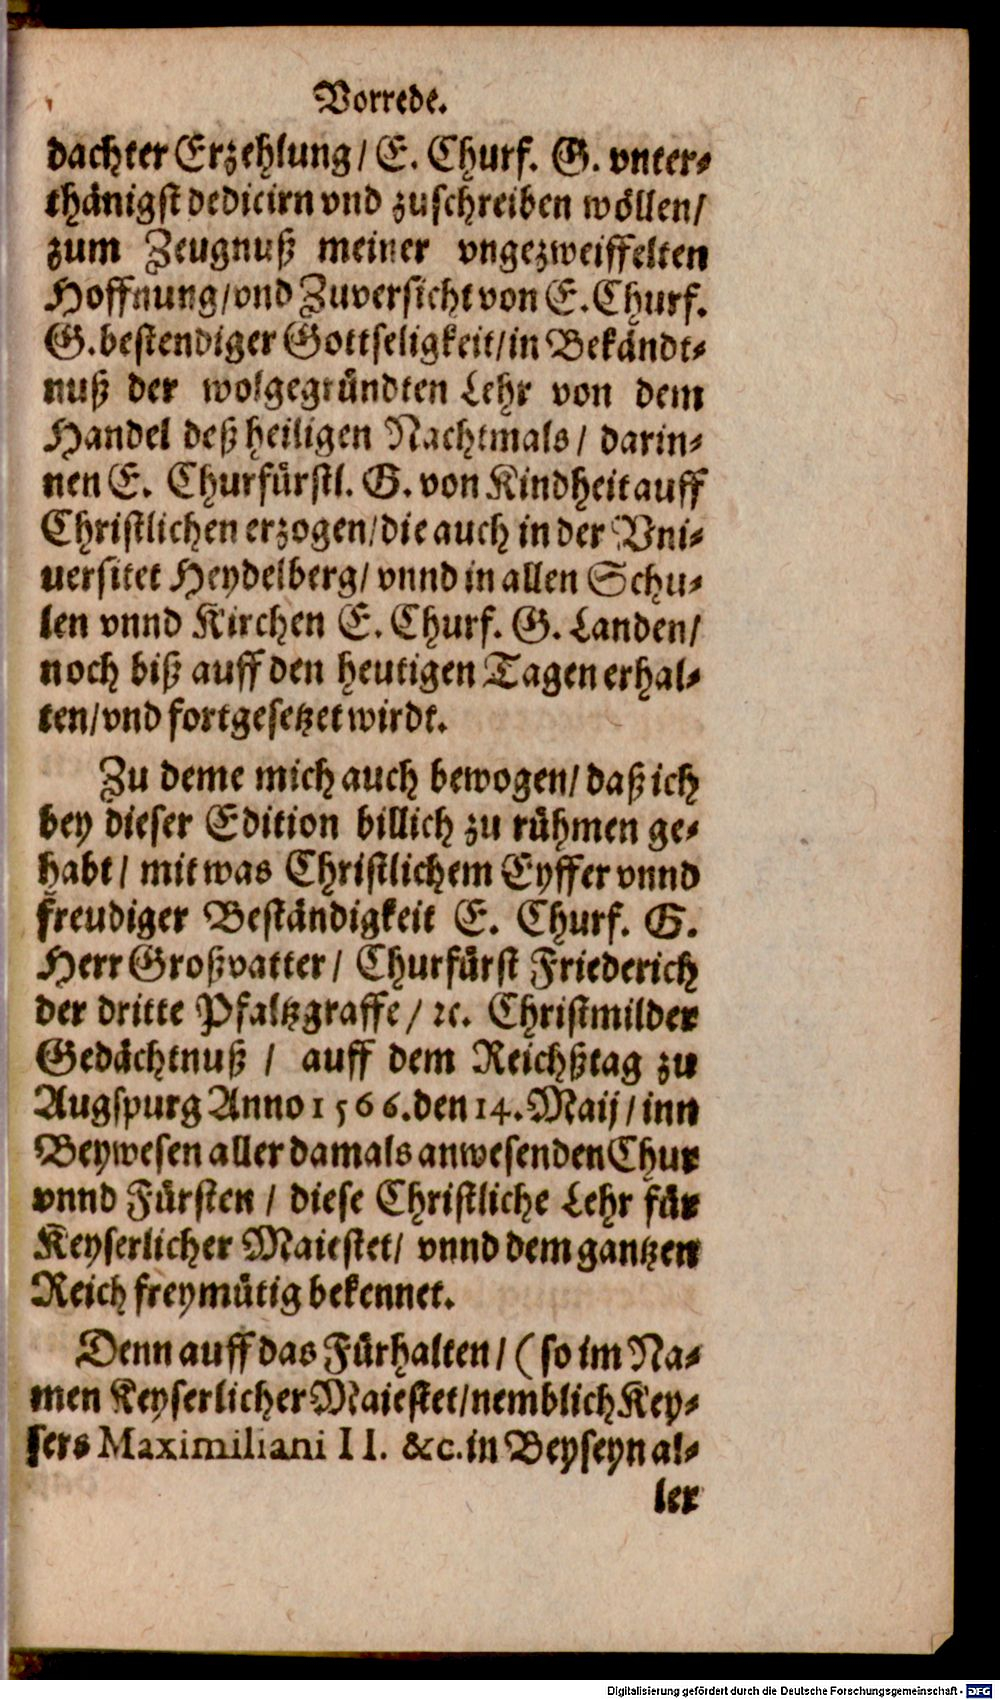 Vorrede.
dachter Erzehlung/ E. Churf. G. vnter⸗
thänigst dedicirn vnd zuschreiben wöllen/
zum Zeugnuß meiner vngezweiffelten
Hoffnung/vnd Zuversicht von E. Churf.
G. bestendiger Gottseligkeit/in Bekändt⸗
nuß der wolgegründten Lehr von dem
Handel deß heiligen Nachtmals/ darin⸗
nen E. Churfürstl. G. von Kindheit auff
Christlichen erzogen/die auch in der Vni⸗
uersitet Heydelberg/ vnnd in allen Schu⸗
len vnnd Kirchen E. Churf. G. Landen/
noch biß auff den heutigen Tagen erhal⸗
ten/vnd fortgesetzet wirdt.
Zu deme mich auch bewogen/ daß ich
bey dieser Edition billich zu rühmen ge⸗
habt/ mit was Christlichem Eyffer vnnd
freudiger Beständigkeit E. Churf. G.
Herr Großvatter/ Churfürst Friederich
der dritte Pfaltzgraffe/ ꝛc. Christmilder
Gedächtnuß / auff dem Reichßtag zu
Augspurg Anno 1566. den 14. Maij/ inn
Beywesen aller damals anwesenden Chur
vnnd Fürsten / diese Christliche Lehr für
Keyserlicher Maiestet/ vnnd dem gantzen
Reich freymütig bekennet.
Denn auff das Fürhalten/ (so im Na⸗
men Keyserlicher Maiestet/nemblich Key⸗
sers Maximiliani II. &c. in Beyseyn al⸗
ler
Digitalisierung gefördert durch die Deutsche Forschungsgemeinschaft - DFG